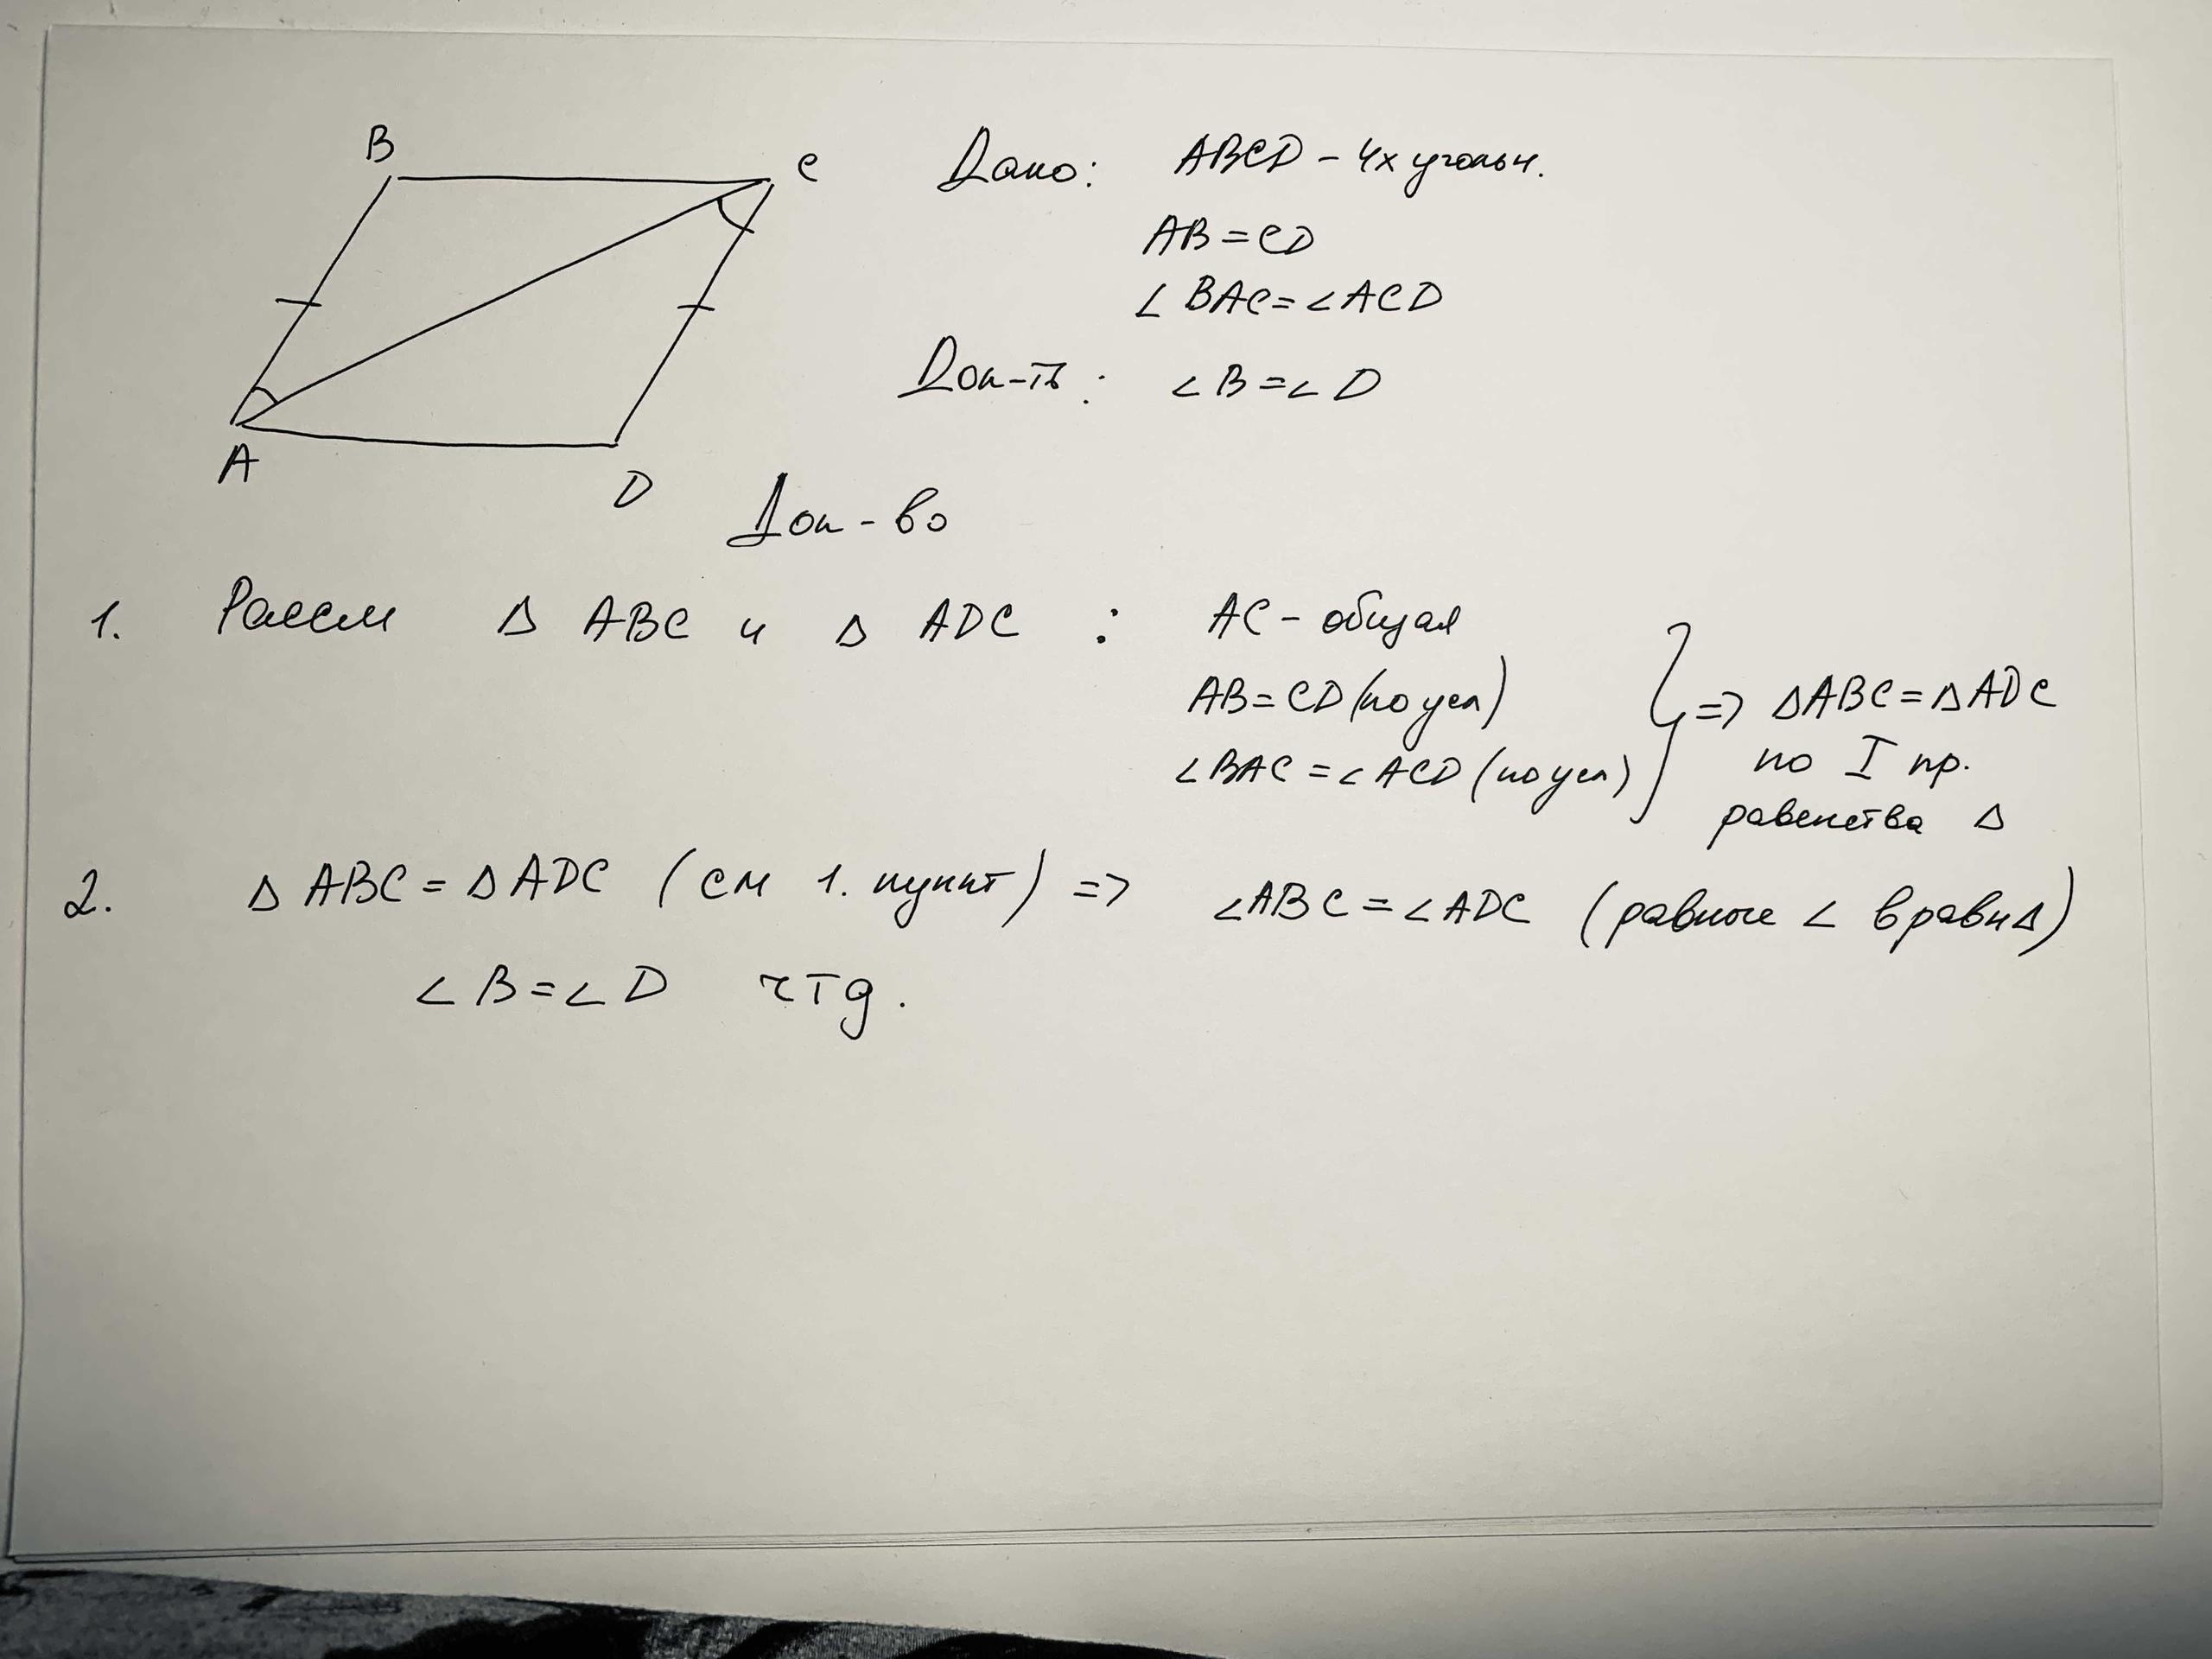 B
C
A
D
Дано: ABCD - 4х угольн.
AB = CD
∠ BAC = ∠ ACD
Док-ть: ∠ B = ∠ D
Док-во
1. Рассм Δ ABC и Δ ADC : AC - общая
AB = CD (по усл)
∠BAC = ∠ ACD (по усл)
} => ΔABC = ΔADC
по I пр.
равенства Δ
2. Δ ABC = Δ ADC (см 1. пункт) => ∠ABC = ∠ADC (равные ∠ в равн Δ)
∠ B = ∠ D чтд.